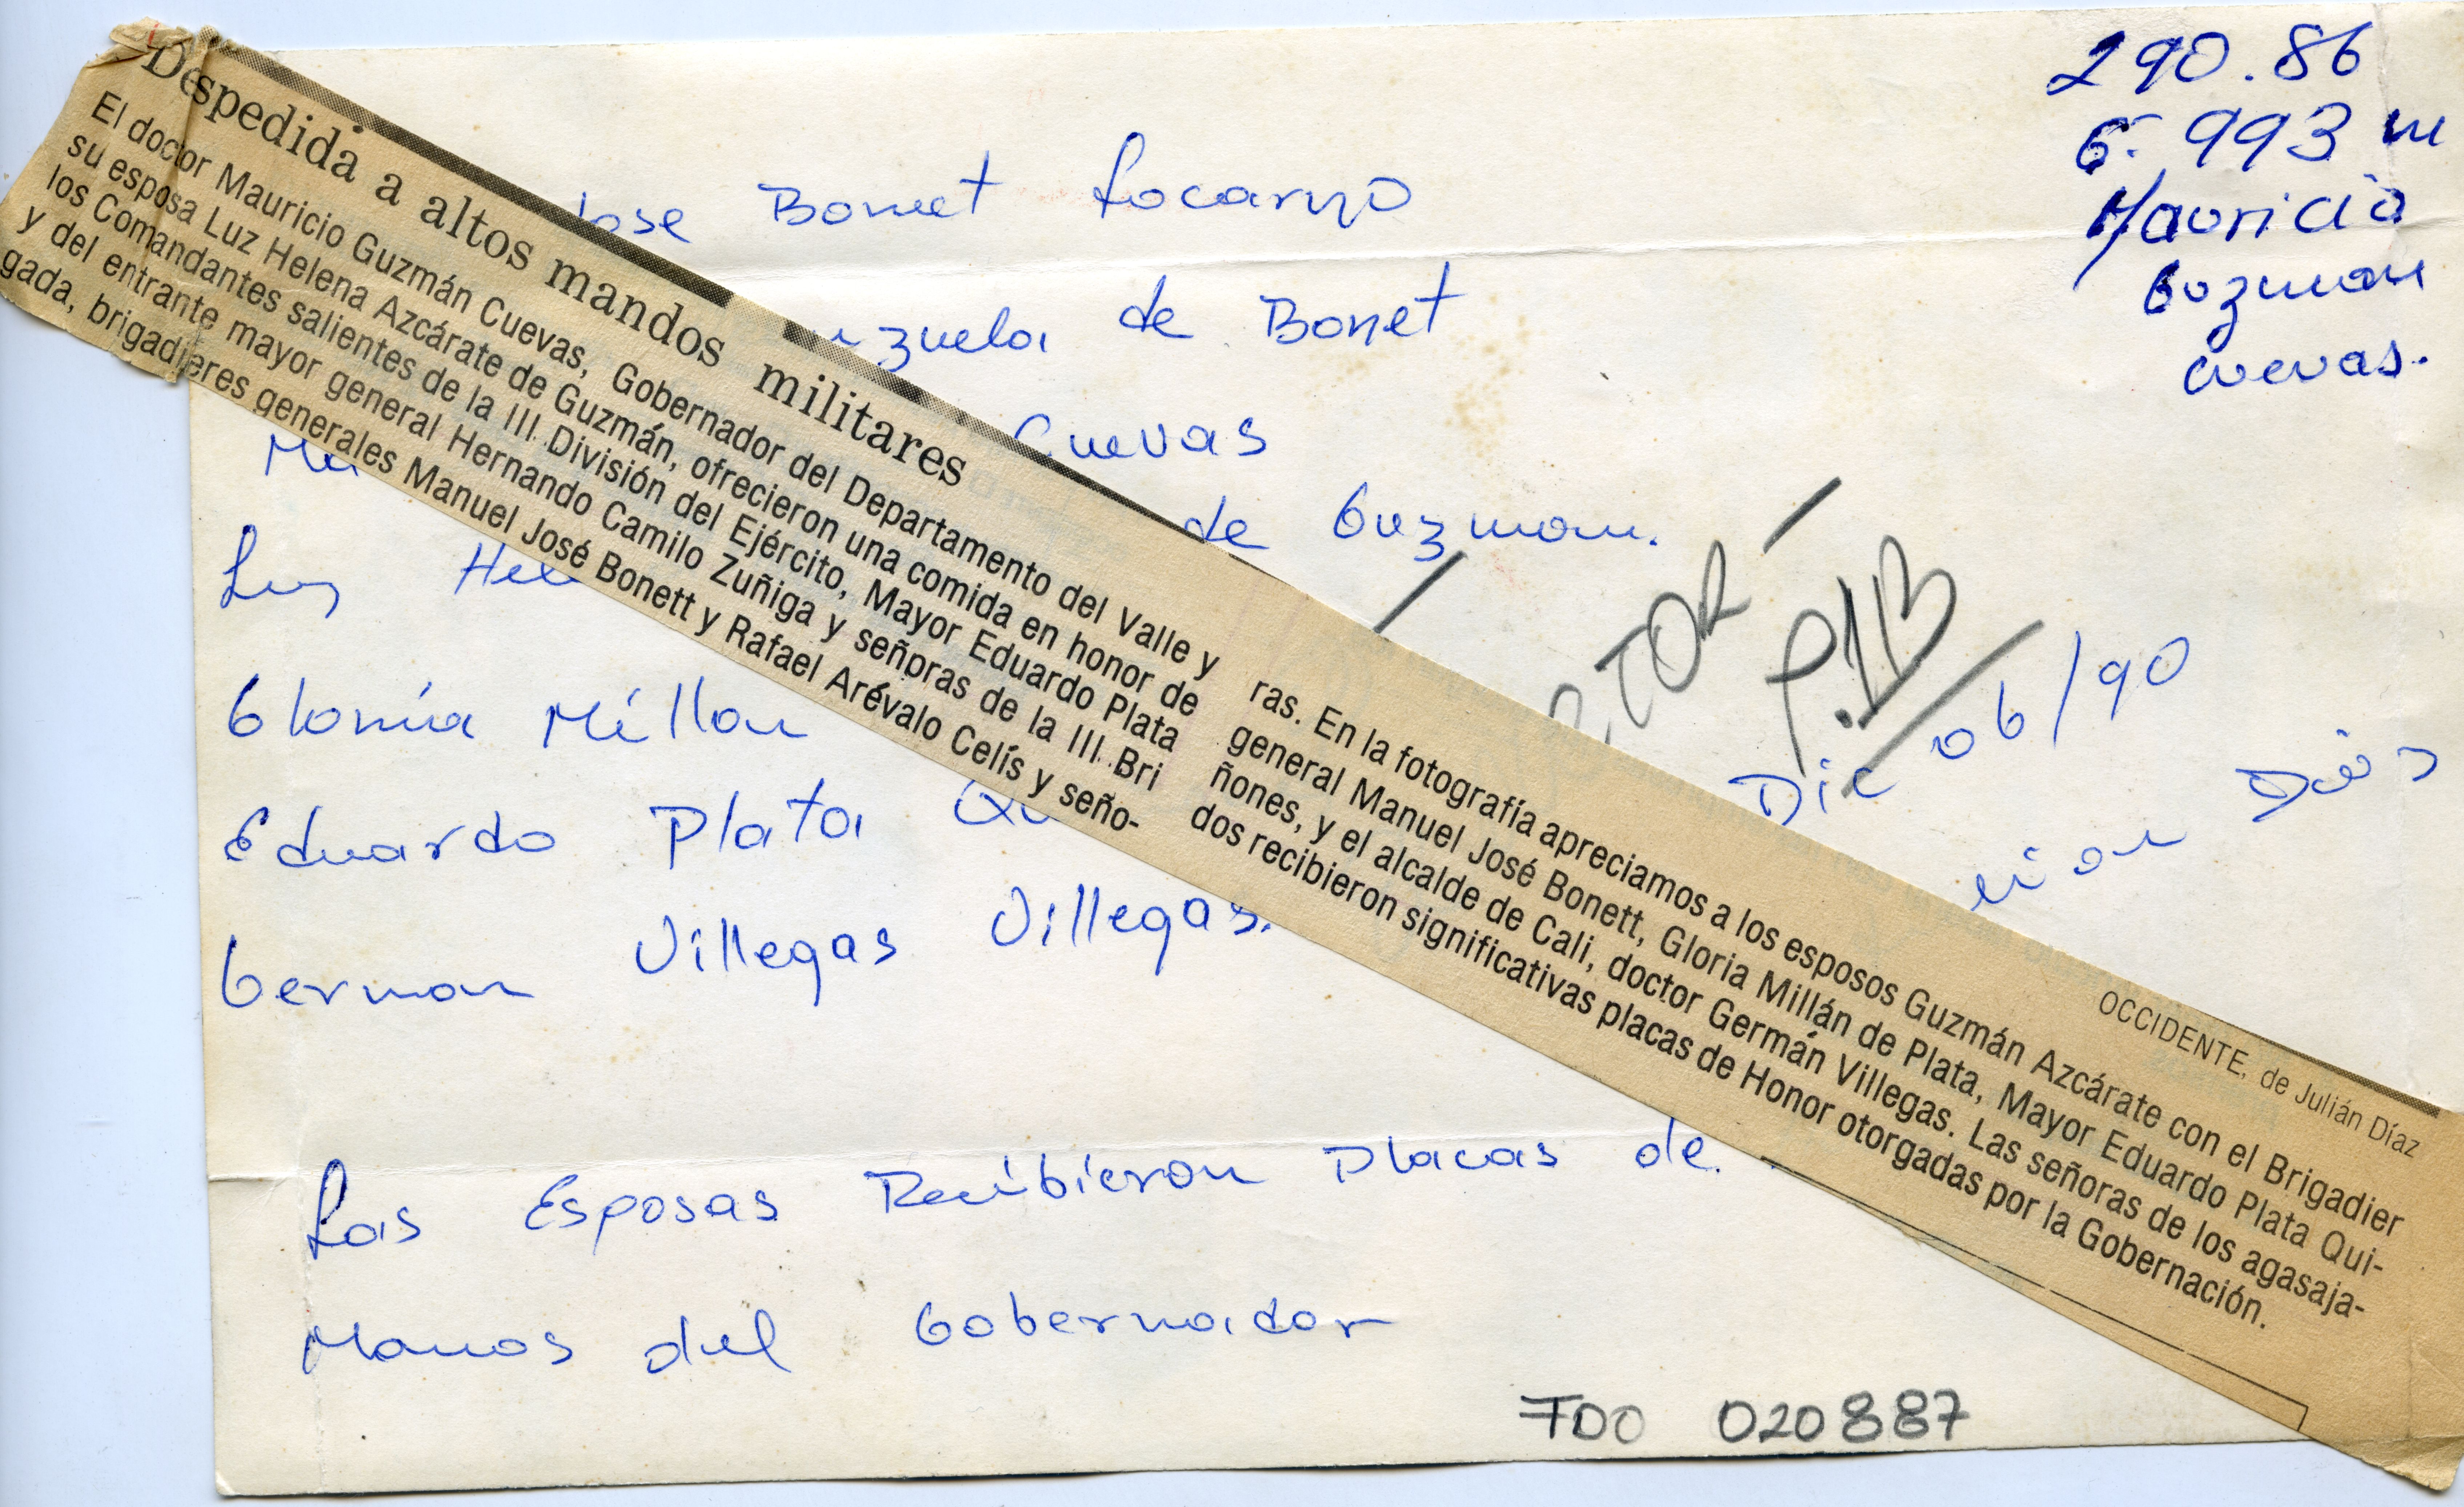 290.86
993
Mauricio
Guzman
Cuevas.
Jose Bonnet Locarno
de Bonet
Cuevas
de Guzman.
Luz
Gloria Millan
Eduardo Plata
German Villegas Villegas.
P.1B
Dic 06/90
Las Esposas Recibieron Placas de
Manos del Gobernador
FDO 020887
Despedida a altos mandos militares
El doctor Mauricio Guzmán Cuevas, Gobernador del Departamento del Valle y
su esposa Luz Helena Azcárate de Guzmán, ofrecieron una comida en honor de
los Comandantes salientes de la III División del Ejército, Mayor Eduardo Plata
y del entrante mayor general Hernando Camilo Zuñiga y señoras de la III Bri
gada, brigadieres generales Manuel José Bonett y Rafael Arévalo Celís y seño-
OCCIDENTE, de Julián Díaz
ras. En la fotografía apreciamos a los esposos Guzmán Azcárate con el Brigadier
general Manuel José Bonett, Gloria Millán de Plata, Mayor Eduardo Plata Qui-
ñones, y el alcalde de Cali, doctor Germán Villegas. Las señoras de los agasaja-
dos recibieron significativas placas de Honor otorgadas por la Gobernación.